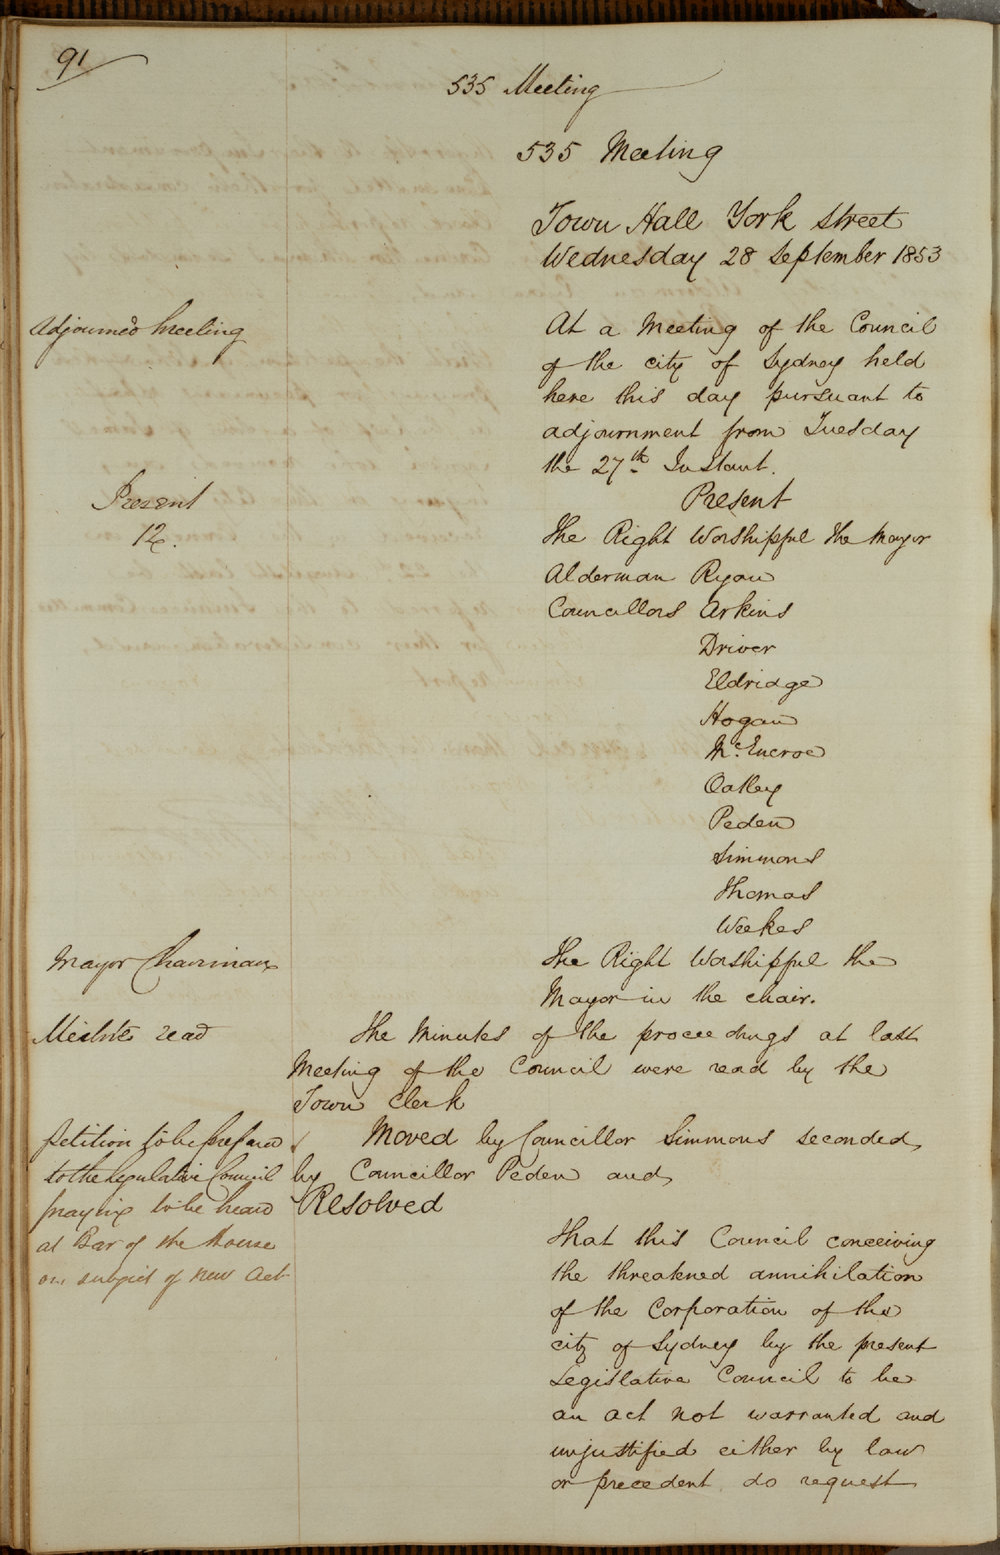 91
535 Meeting
535 Meeting
Town Hall York street
Wednesday 28 September 1853
Adjourned Meeting
At a Meeting of the Council
of the city of Sydney held
here this day pursuant to
adjournment from Tuesday
the 27th Instant.
Present
12.
Present
The Right Worshipful the Mayor
Alderman Ryan
Councillors Arkins
Driver
Eldridge
Hogan
McEncroe
Oatley
Peden
Simmons
Thomas
Weekes
Mayor Chairman
The Right Worshipful the
Mayor in the chair.
Minutes read
The Minutes of the proceedings at last
Meeting of the Council were read by the
Town Clerk
Petition to be prepared
to the Legislative Council
praying to be heard
at Bar of the House
on subject of New Act
Moved by Councillor Simmons seconded
by Councillor Peden and
Resolved
That this Council conceiving
the threatened annihilation
of the Corporation of the
city of Sydney by the present
Legislative Council to be
an act not warranted and
unjustified either by law
or precedent do request